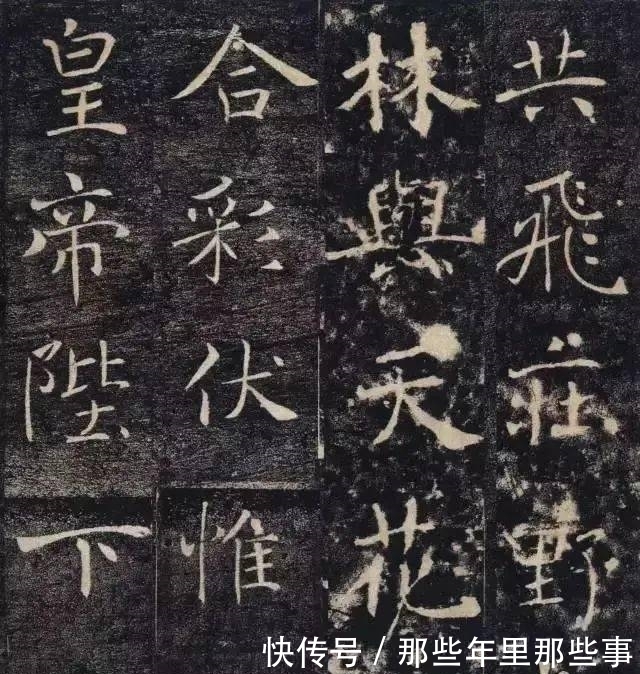 共飛莊野
林與天花
合彩伏惟
皇帝陛下
快传号/那些年里那些事